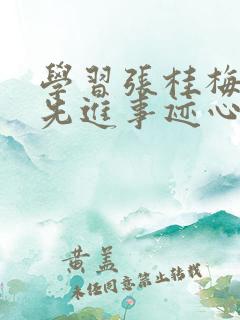 學習張桂梅
先進事迹心
黄盖
未经同意禁止转载